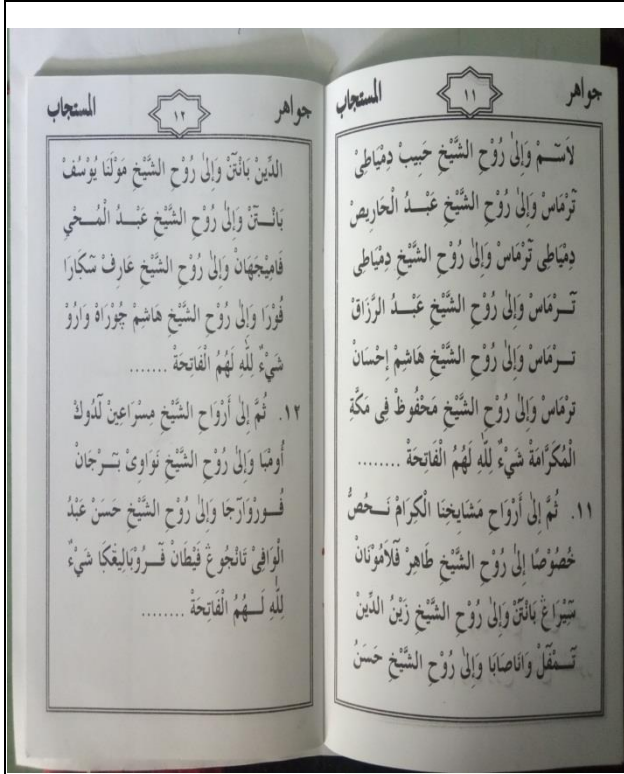 جواهر ١١ المستجاب
لَاسَـمْ وَإِلَىٰ رُوْحِ الشَّيْخِ حَبِيبْ دِمْيَاطِىْ
تَرْمَاسْ وَإِلَىٰ رُوْحِ الشَّيْخِ عَبْـدُ الْحَارِيصْ
دِمْيَاطِى تَرْمَاسْ وَإِلَىٰ رُوْحِ الشَّيْخِ دِمْيَاطِى
تَـرْمَاسْ وَإِلَىٰ رُوْحِ الشَّيْخِ عَبْـدُ الرَّزَاقْ
تَـرْمَاسْ وَإِلَىٰ رُوْحِ الشَّيْخِ هَاشِمْ إِحْسَانْ
تَرْمَاسْ وَإِلَىٰ رُوْحِ الشَّيْخِ مَحْفُوظْ فِى مَكَّةِ
الْمُكَرَّامَةْ شَيْءٌ لِلّٰهِ لَهُمُ الْفَاتِحَةْ ........
١١. ثُمَّ إِلَىٰ أَرْوَاحِ مَشَايِخِنَا الْكِرَامْ نَـخُصُّ
خُصُوْصًا إِلَىٰ رُوْحِ الشَّيْخِ طَاهِرْ فَلَامُوْنَانْ
سَيْرَاغْ بَانْتَنْ وَإِلَىٰ رُوْحِ الشَّيْخِ زَيْنُ الدِّيْنْ
تَـمْفَلْ وَانَاصَابَا وَإِلَىٰ رُوْحِ الشَّيْخِ حَسَنُ
جواهر ١٢ المستجاب
الدِّيْنْ بَانْتَنْ وَإِلَىٰ رُوْحِ الشَّيْخِ مَوْلَنَا يُوْسُفْ
بَانْـتَنْ وَإِلَىٰ رُوْحِ الشَّيْخِ عَبْـدُ الْمُـحْيِ
فَامِيْجَهَانْ وَإِلَىٰ رُوْحِ الشَّيْخِ عَارِفْ سَكَارَا
فُوْرَا وَإِلَىٰ رُوْحِ الشَّيْخِ هَاشِمْ چُوْرَاهْ وَارُوْ
شَيْءٌ لِلّٰهِ لَهُمُ الْفَاتِحَةْ .......
١٢. ثُمَّ إِلَىٰ أَرْوَاحِ الشَّيْخِ مِسْرَاعِيْنْ لَدُوكْ
أُومْبَا وَإِلَىٰ رُوْحِ الشَّيْخِ نَوَاوِىْ بَـرْجَانْ
فُـورْوَارَجَا وَإِلَىٰ رُوْحِ الشَّيْخِ حَسَنْ عَبْدُ
الْوَافِىْ تَانْجُوغْ فَيْطَانْ فَـرُوْبَالِيغْكَا شَيْءٌ
لِلّٰهِ لَـهُمُ الْفَاتِحَةْ ........